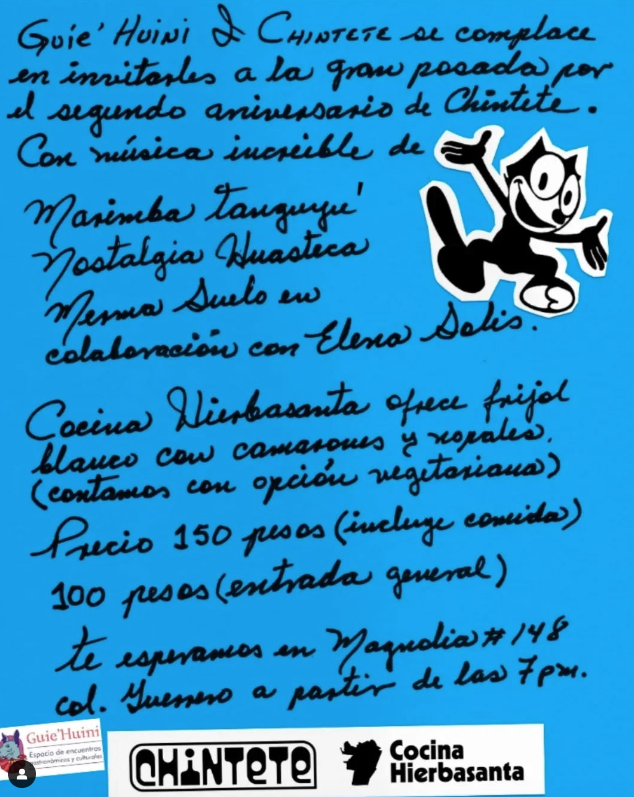 Guie' Huini & CHINTETE se complace
en invitarles a la gran posada por
el segundo aniversario de Chintete.
Con música increíble de
Marimba Tanguyu'
Nostalgia Huasteca
Merma Suelo en
colaboración con Elena Solis.
Cocina Hierbasanta ofrece frijol
blanco con camarones y nopales.
(contamos con opción vegetariana)
Precio 150 pesos (incluye comida)
100 pesos (entrada general)
te esperamos en Magnolia # 148
col. Guerrero a partir de las 7 pm.
Guie'Huini
Espacio de encuentros
gastronómicos y culturales
CHINTETE
Cocina
Hierbasanta